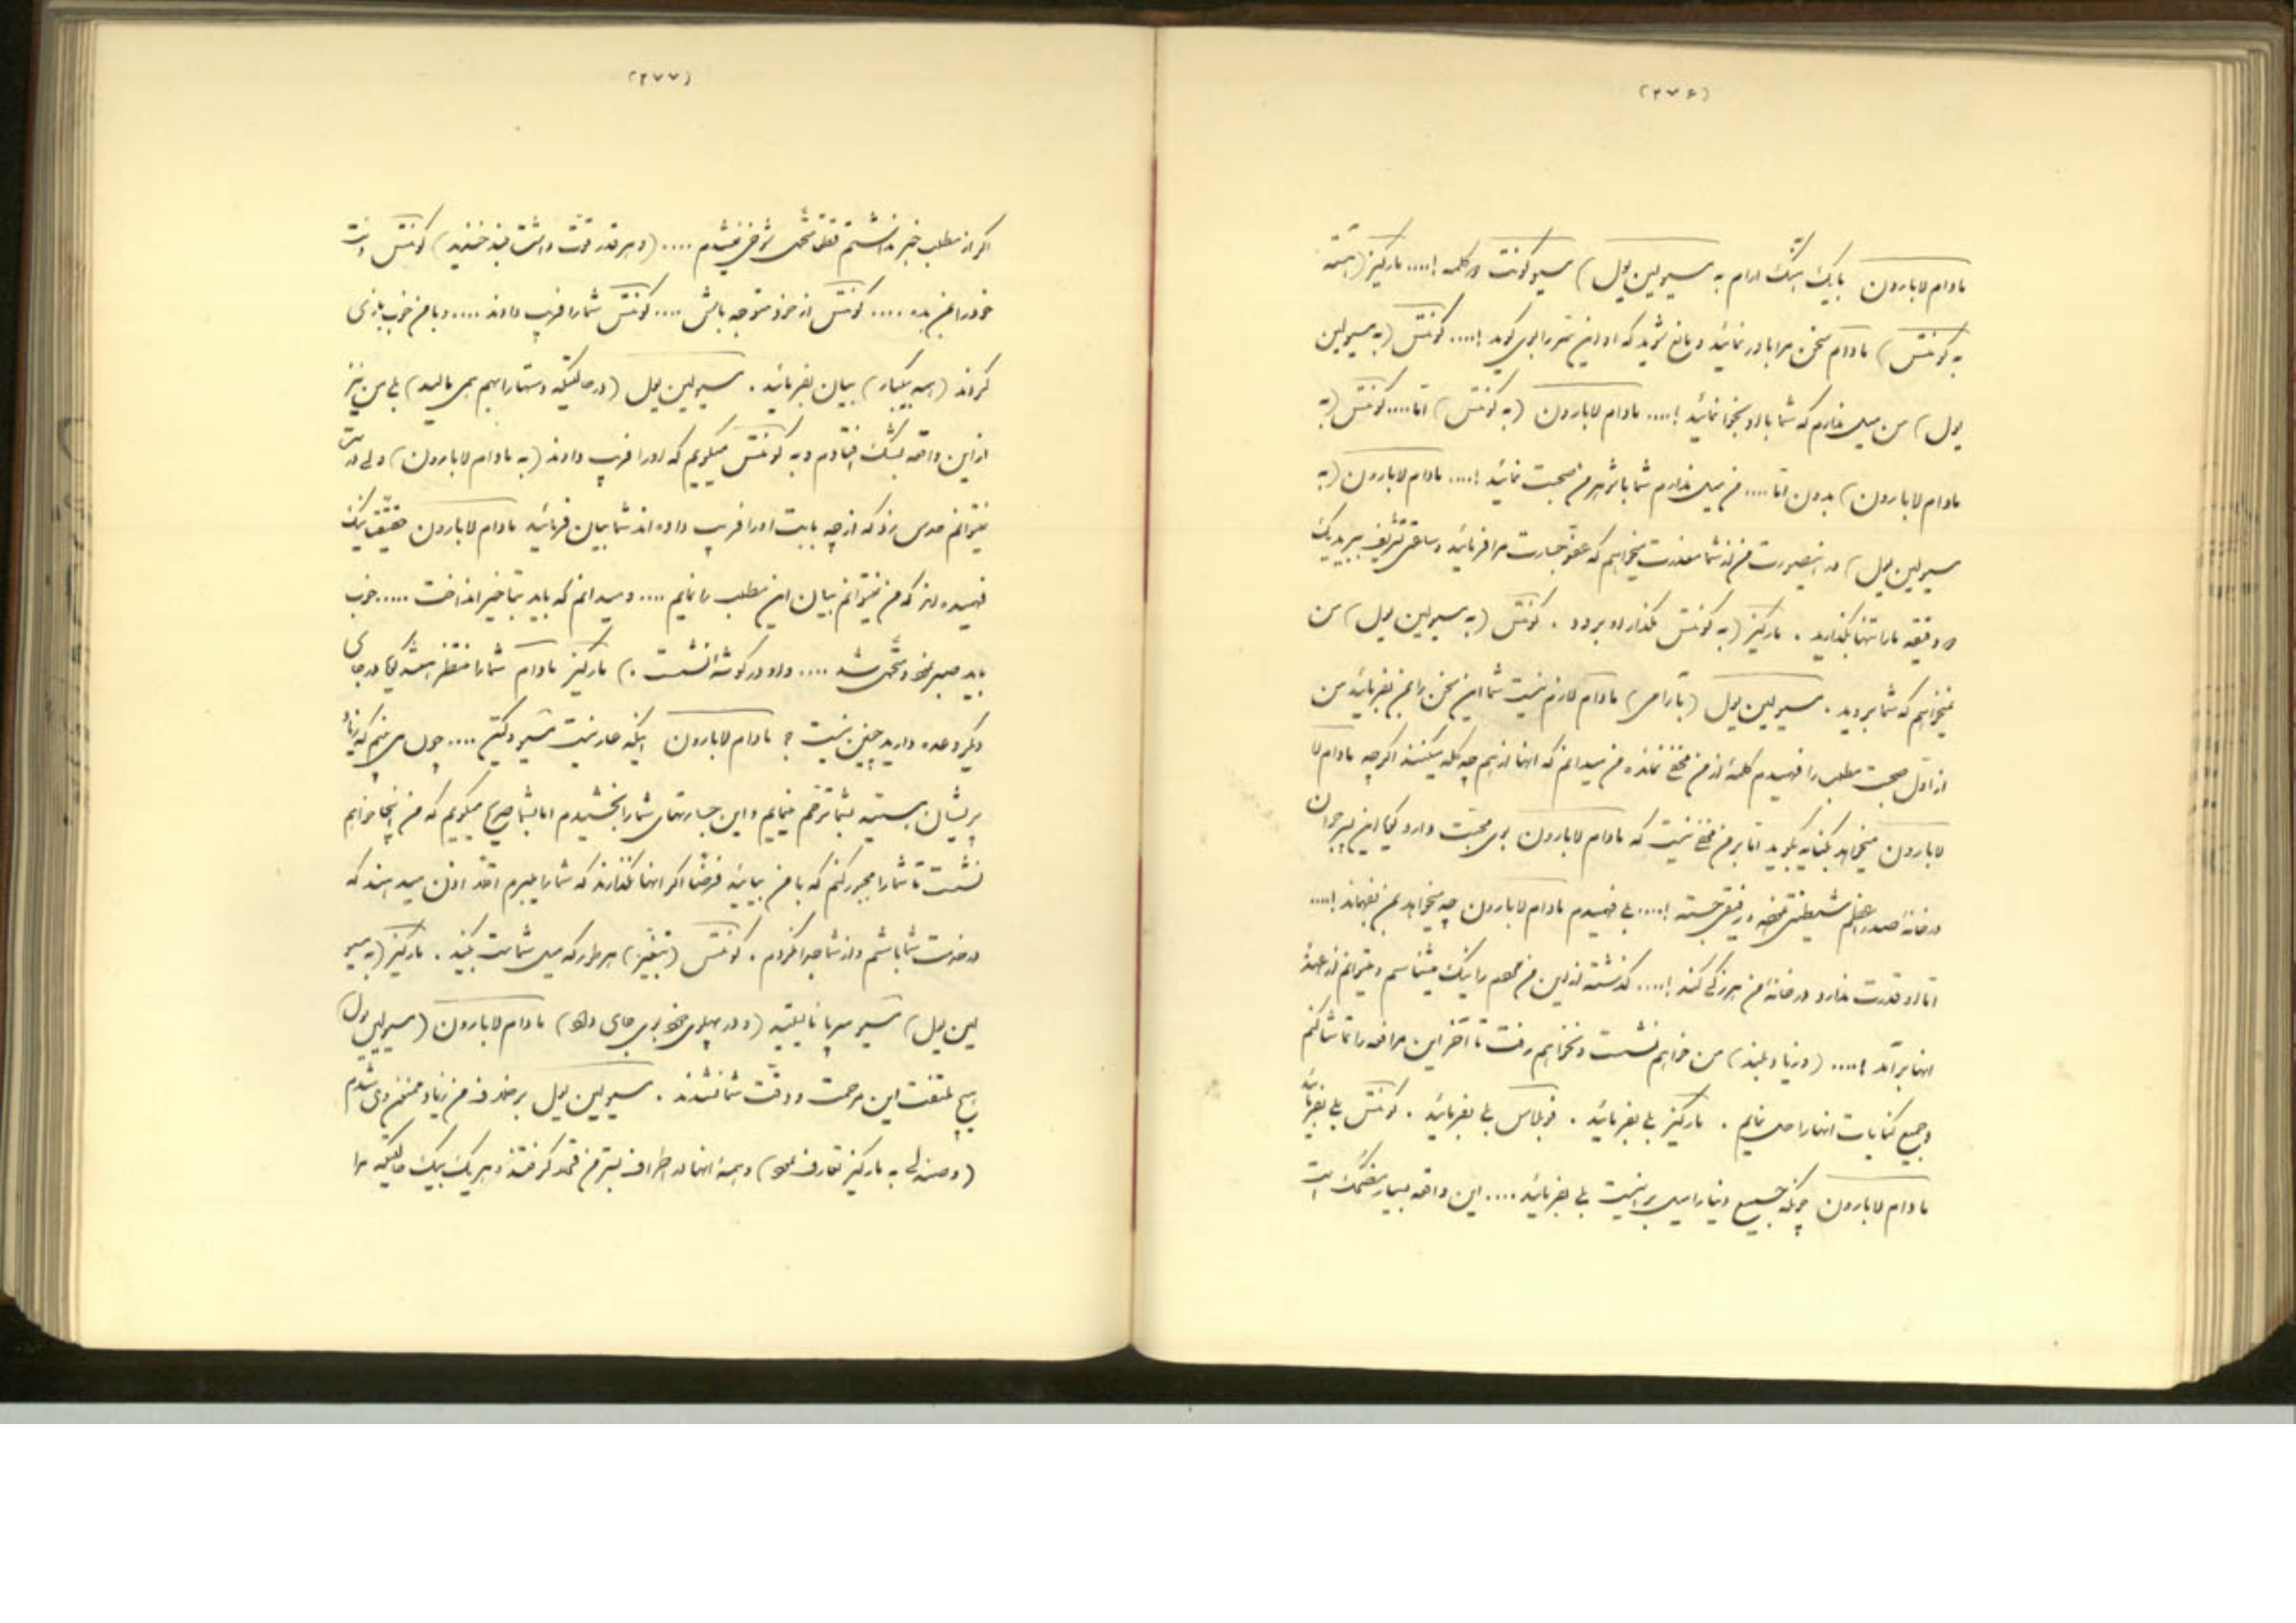 (۲۷۶)
مادام لابارون بایک آهنگ ارام به مسیو لین پول) مسیو کونت دو کلمه !.... مارکیز (آهسته
به کونتس) مادام سخن مرا باور نمائید و مانع شوید که او این سر را بوی گوید !.... کونتس (به مسیو لین
پول) من میل ندارم که شما با او نجوا نمائید !.... مادام لابارون (به کونتس) اما.... کونتس (به
مادام لابارون) بدون اما.... من میل ندارم شما با شوهر من صحبت نمائید !.... مادام لابارون (به
مسیو لین پول) در اینصورت من از شما معذرت میخواهم که عفو جسارت مرا فرمائید و ساعتی تشریف ببرید یک
دو دقیقه ما را تنها بگذارید . مارکیز (به کونتس بگذار او برود . کونتس (به مسیو لین پول) من
نمیخواهم که شما بروید . مسیو لین پول (بآرامی) مادام لازم نیست شما این سخن را بمن بفرمائید من
از اول صحبت مطلب را فهمیدم کلمهٔ از من مخفی نمانده من میدانم که آنها از هم چه گله میکنند اگرچه مادام لا
لابارون میخواهد بکنایه بگوید اما بر من مخفی نیست که مادام لابارون بوی محبت دارد گویا این پیر جوان
در خانهٔ صدراعظم شیطنتی نموده و رفیقی جسته !.... بلی فهمیدم مادام لابارون چه میخواهد بمن بفهماند !....
اما او قدرت ندارد در خانهٔ من هرزگی کند !.... گذشته از این من هم را نیک میشناسم و میتوانم از عهدهٔ
آنها برآمد !.... (و زیاد بلند) من خواهم نشست و نخواهم رفت تا آخر این مرافعه را تماشا کنم
و جمیع کنایات آنها را حل نمایم . مارکیز بلی بفرمائید . دوبلاس بلی بفرمائید . کونتس بلی بفرمائید
مادام لابارون چونکه جمیع دنیا را میل بر اینست بلی بفرمائید .... این واقعه بسیار مضحک است
(۲۷۷)
اگر از مطلب خبر نداشتم فقط متحمل شوخی نمیشدم .... (و هر قدر قوت داشت بلند خندید) کونتس دست
خود را بمن بده .... کونتس از خود متوجه باش .... کونتس شما را فریب دادند .... و با من خوب بازی
کردند (همه بیکبار) بیان بفرمائید . مسیو لین پول (در حالتیکه دستها را بهم می مالید) بلی من نیز
از این واقعه بشک افتادم و به کونتس میگویم که او را فریب دادند (به مادام لابارون) ولی درست
نمیتوانم حدس زد که از چه بابت او را فریب داده اند شما بیان فرمائید مادام لابارون حقیقت نیک
فهمیده اند که من نمیتوانم بیان این مطلب را نمایم .... و میدانم که باید بتاخیر انداخت ..... خوب
باید صبر نمود و متحمل شد .... (و او در گوشهٔ نشست .) مارکیز مادام شما را منتظر هستند گویا در جای
دیگر وعده دارید چنین نیست ؟ مادام لابارون اینکه عار نیست مسیو دکتر .... چون می بینم که زیاد
پریشان هستید بشما ترحم مینمایم و این جسارتهای شما را بخشیدم اما بشما صریح میگویم که من اینجا خواهم
نشست تا شما را مجبور کنم که با من بیائید فرضا اگر آنها نگذارند که شما را ببرم اقلا اذن میدهند که
در خدمت شما باشم و از شما جدا نگردم . کونتس (بتغیر) هر طور که میل شماست بکنید . مارکیز (به مسیو
لین پول) مسیو سرپا نایستید (و در پهلوی خود بوی جای داد) مادام لابارون (مسیو لین پول)
هیچ ملتفت این مرحمت و دقت شما نشدند . مسیو لین پول بر خلاف من زیاد ممنون وی شدم
(و صندلی به مارکیز تعارف نمود) و همهٔ آنها در اطراف بستر من قعود گرفتند و هر یک بیک حالتیکه مرا